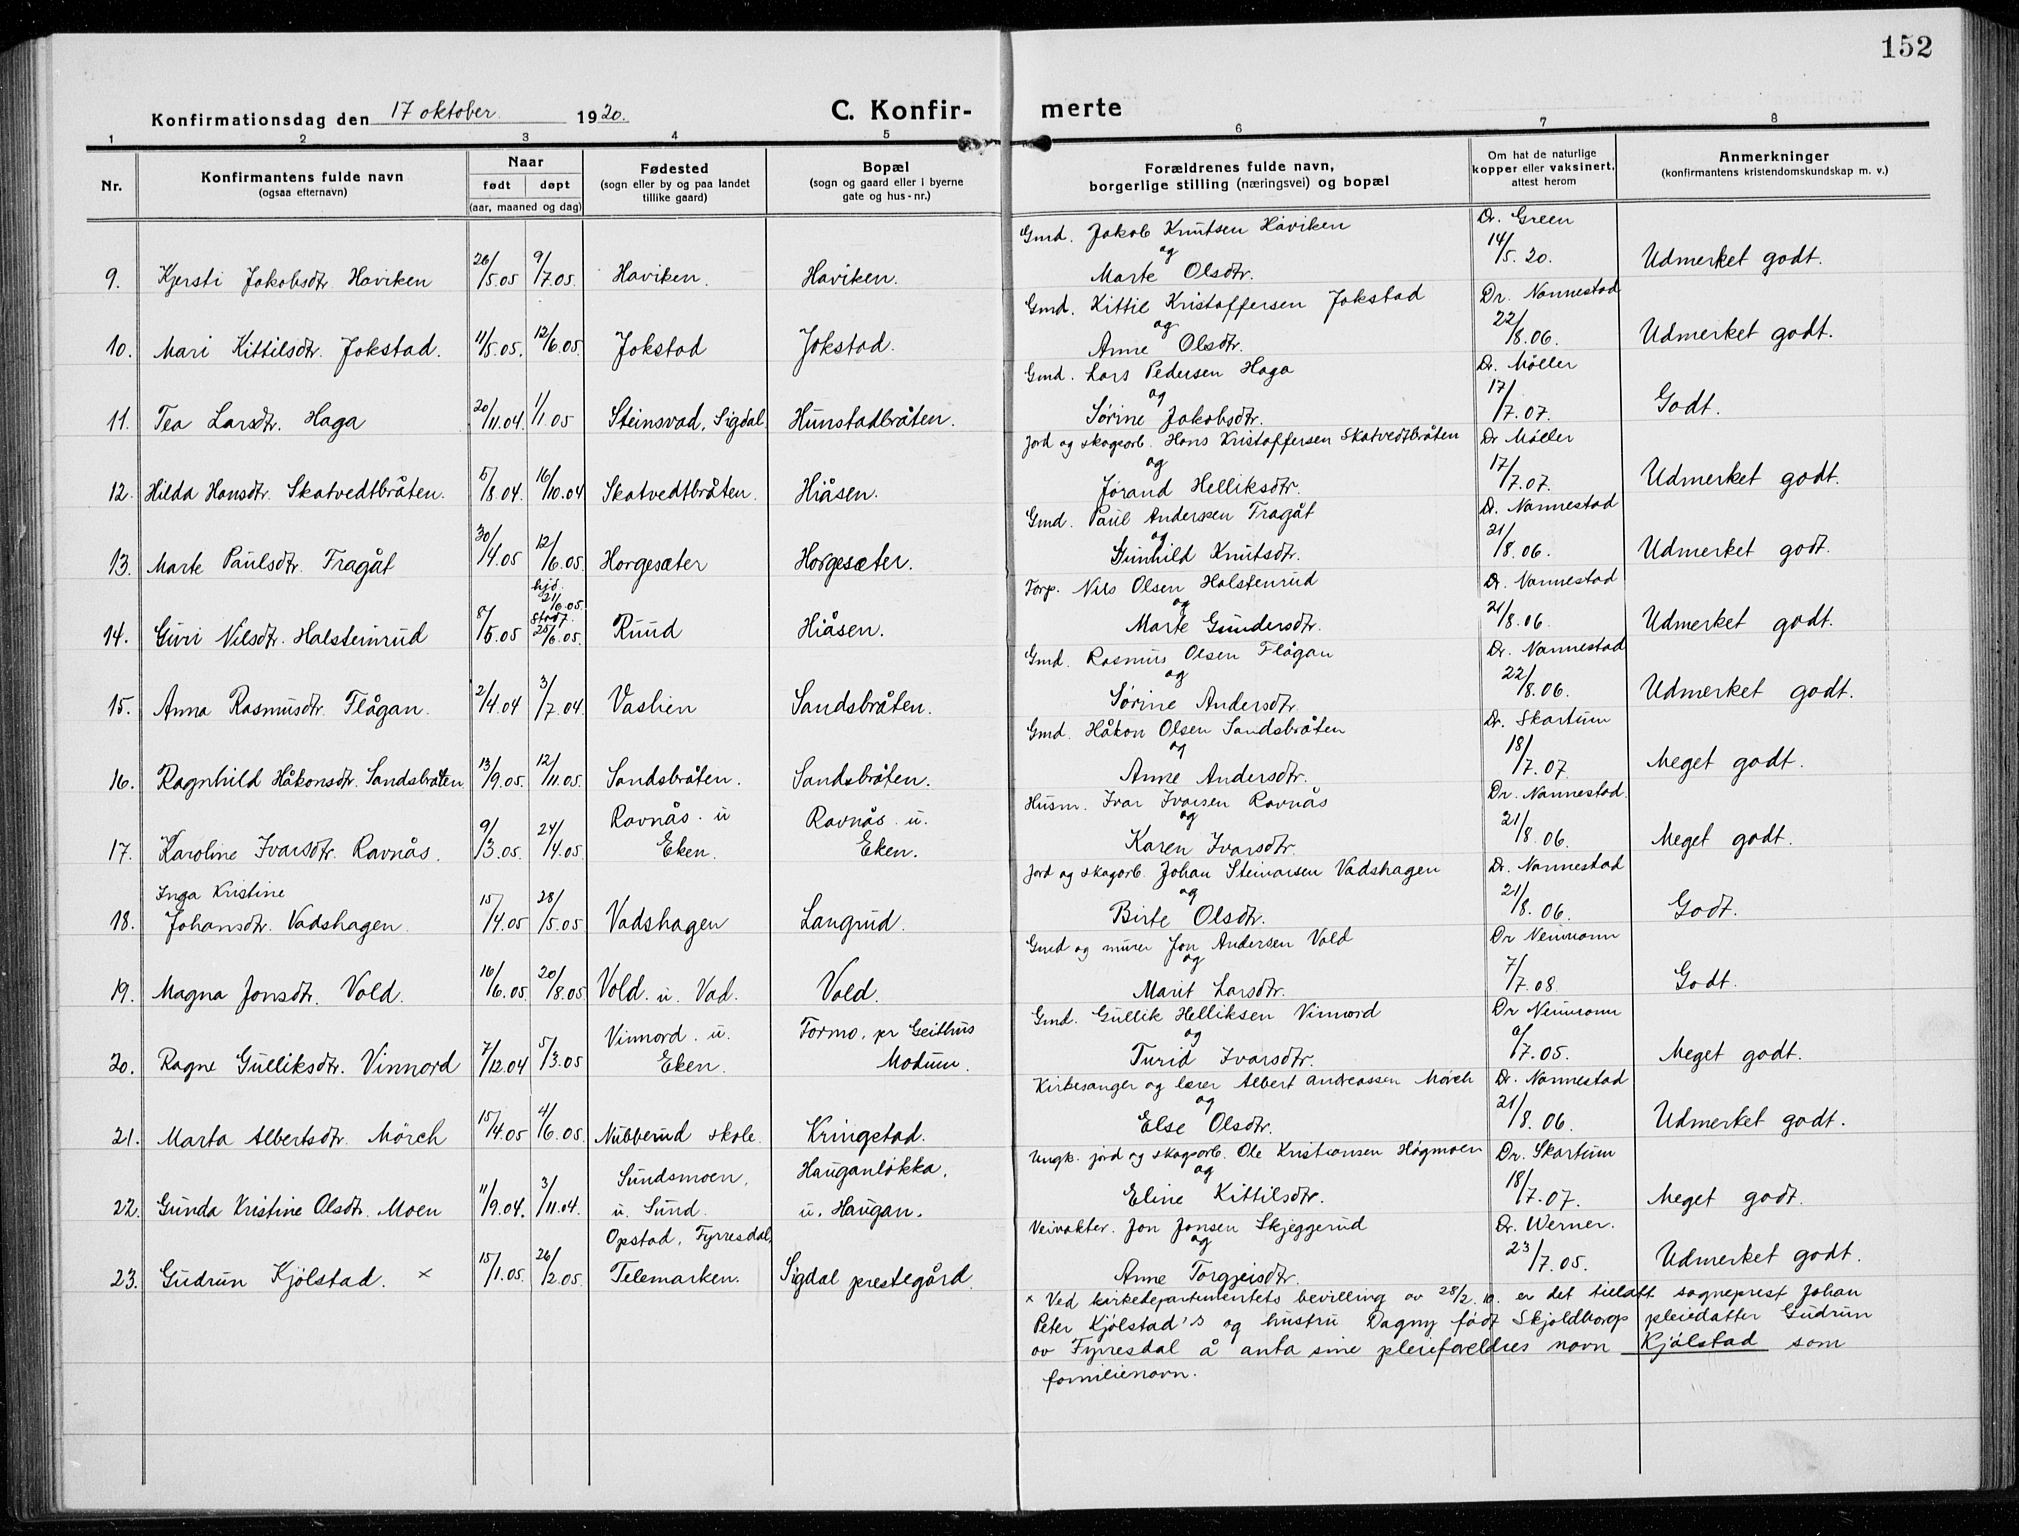 152
Konfirmationsdag den 17 oktober 1920.
C. Konfir- merte
1 2 3 4 5 6 7 8
Nr.
Konfirmantens fulde navn
(ogsaa efternavn)
Naar
født døpt
(aar, maaned og dag)
Fødested
(sogn eller by og paa landet
tillike gaard)
Bopæl
(sogn og gaard eller i byerne
gate og hus-nr.)
Forældrenes fulde navn,
borgerlige stilling (næringsvei) og bopæl
Om hat de naturlige
kopper eller vaksinert,
attest herom
Anmerkninger
(konfirmantens kristendomskundskap m. v.)
Gmd. Jakob Knutsen Haviken Dr. Green
og 14/5. 20.
9. Kjersti Jakobsdtr Haviken 26/5.05 9/7.05. Haviken. Haviken. Marte Olsdtr. Udmerket godt.
Gmd. Kittil Kristoffersen Jokstad Dr. Nannestad
og 22/8.06.
10. Mari Kittilsdtr. Jokstad. 11/5.05. 12/6.05 Jokstad Jokstad. Anne Olsdtr. Udmerket godt.
Gmd. Lars Pedersen Haga Dr. Møller
og 17/7.07.
11. Tea Larsdtr. Haga 20/11.04 1/1.05 Steinsvad, Sigdal Hunstadbråten. Sørine Jakobsdtr. Godt.
Jord og skogsarb. Hans Kristoffersen Skatvedtbråten Dr Møller
og 17/7.07.
12. Hilda Hansdtr. Skatvedtbråten. 5/8.04. 16/10.04 Skatvedtbråten. Hiåsen. Jorand Helliksdtr. Udmerket godt.
Gmd. Paul Andersen Fragåt Dr. Nannestad
og 21/8.06.
13. Marte Paulsdtr. Fragåt 30/4.05 12/6.05 Horgesæter Horgesæter. Gunhild Knutsdtr. Udmerket godt.
hjd. 21/6.05.
stadf. 25/6.05.
Torp. Nils Olsen Halstenrud Dr. Nannestad
og 21/8.06.
14. Guri Nilsdtr. Halsteinrud 8/5.05 Ruud Hiåsen. Marte Gundersdtr. Udmerket godt.
Gmd. Rasmus Olsen Flågan Dr. Nannestad
og 22/8.06.
15. Anna Rasmusdtr. Flågan. 2/4.04 3/7.04 Vaslien Sandsbråten. Sørine Andersdtr. Udmerket godt.
Gmd. Håkon Olsen Sandsbråten Dr. Skartum
og 18/7.07.
16. Ragnhild Håkonsdtr. Sandsbråten 13/9.05. 12/11.05. Sandsbråten. Sandsbråten. Anne Andersdtr. Meget godt.
Husm. Ivar Ivarsen Ravnås Dr. Nannestad.
Ravnås. u Ravnås. u. og 21/8.06.
17. Karoline Ivarsdtr. Ravnås. 9/3.05. 24/4.05 Eken. Eken. Karen Ivarsdtr. Meget godt.
Jord og skogarb. Johan Steinarsen Vadshagen Dr. Nannestad
Inga Kristine og 21/8.06.
18. Johansdtr. Vadshagen. 15/4.05 28/5.05 Vadshagen Langrud. Birte Olsdtr. Godt.
Gmd og murer Jon Andersen Vold Dr Neumann
og 7/7.08.
19. Magna Jonsdtr. Vold. 16/6.05. 20/8.05 Vold. u. Vad. Vold. Marit Larsdtr. Godt.
Gmd. Gullik Helliksen Vinnord Dr Neumann
Vinnord. u. Formo. pr Geithus og /7.05.
20. Ragne Gulliksdtr. Vinnord 7/12.04 5/3.05 Eken. Modum. Turid Ivarsdtr. Meget godt.
Kirkesanger og lærer Albert Andreassen Mörch Dr. Nannestad
og 21/8.06.
21. Marta Albertsdtr. Mörch 15/4.05 4/6.05. Nubberud skole. Kringstad. Else Olsdtr. Udmerket godt.
Ungk. jord og skogsarb. Ole Kristiansen Hagmoen Dr. Skartum
Sundsmoen, Hauganløkka, og 18/7.07.
22. Gunda Kristine Olsdtr. Moen 11/9.04. 3/11.04. u. Sund. u. Haugan. Eline Kittilsdtr. Meget godt.
Veivakter. Jon Jonsen Skjeggerud Dr. Werner.
Opstad, Fyrresdal, og 23/7.05.
23. Gudrun Kjölstad. × 15/1.05. 26/2.05. Telemarken. Sigdal prestegård. Anne Torgjeisdtr. Udmerket godt.
× Ved kirkedepartementets bevilling av 28/2.10. er det tillatt sogneprest Johan
Peter Kjølstad's og hustru Dagny født Skjoldborgs pleiedatter Gudrun
av Fyrresdal å anta sine pleieforeldres navn Kjølstad som
familienavn.